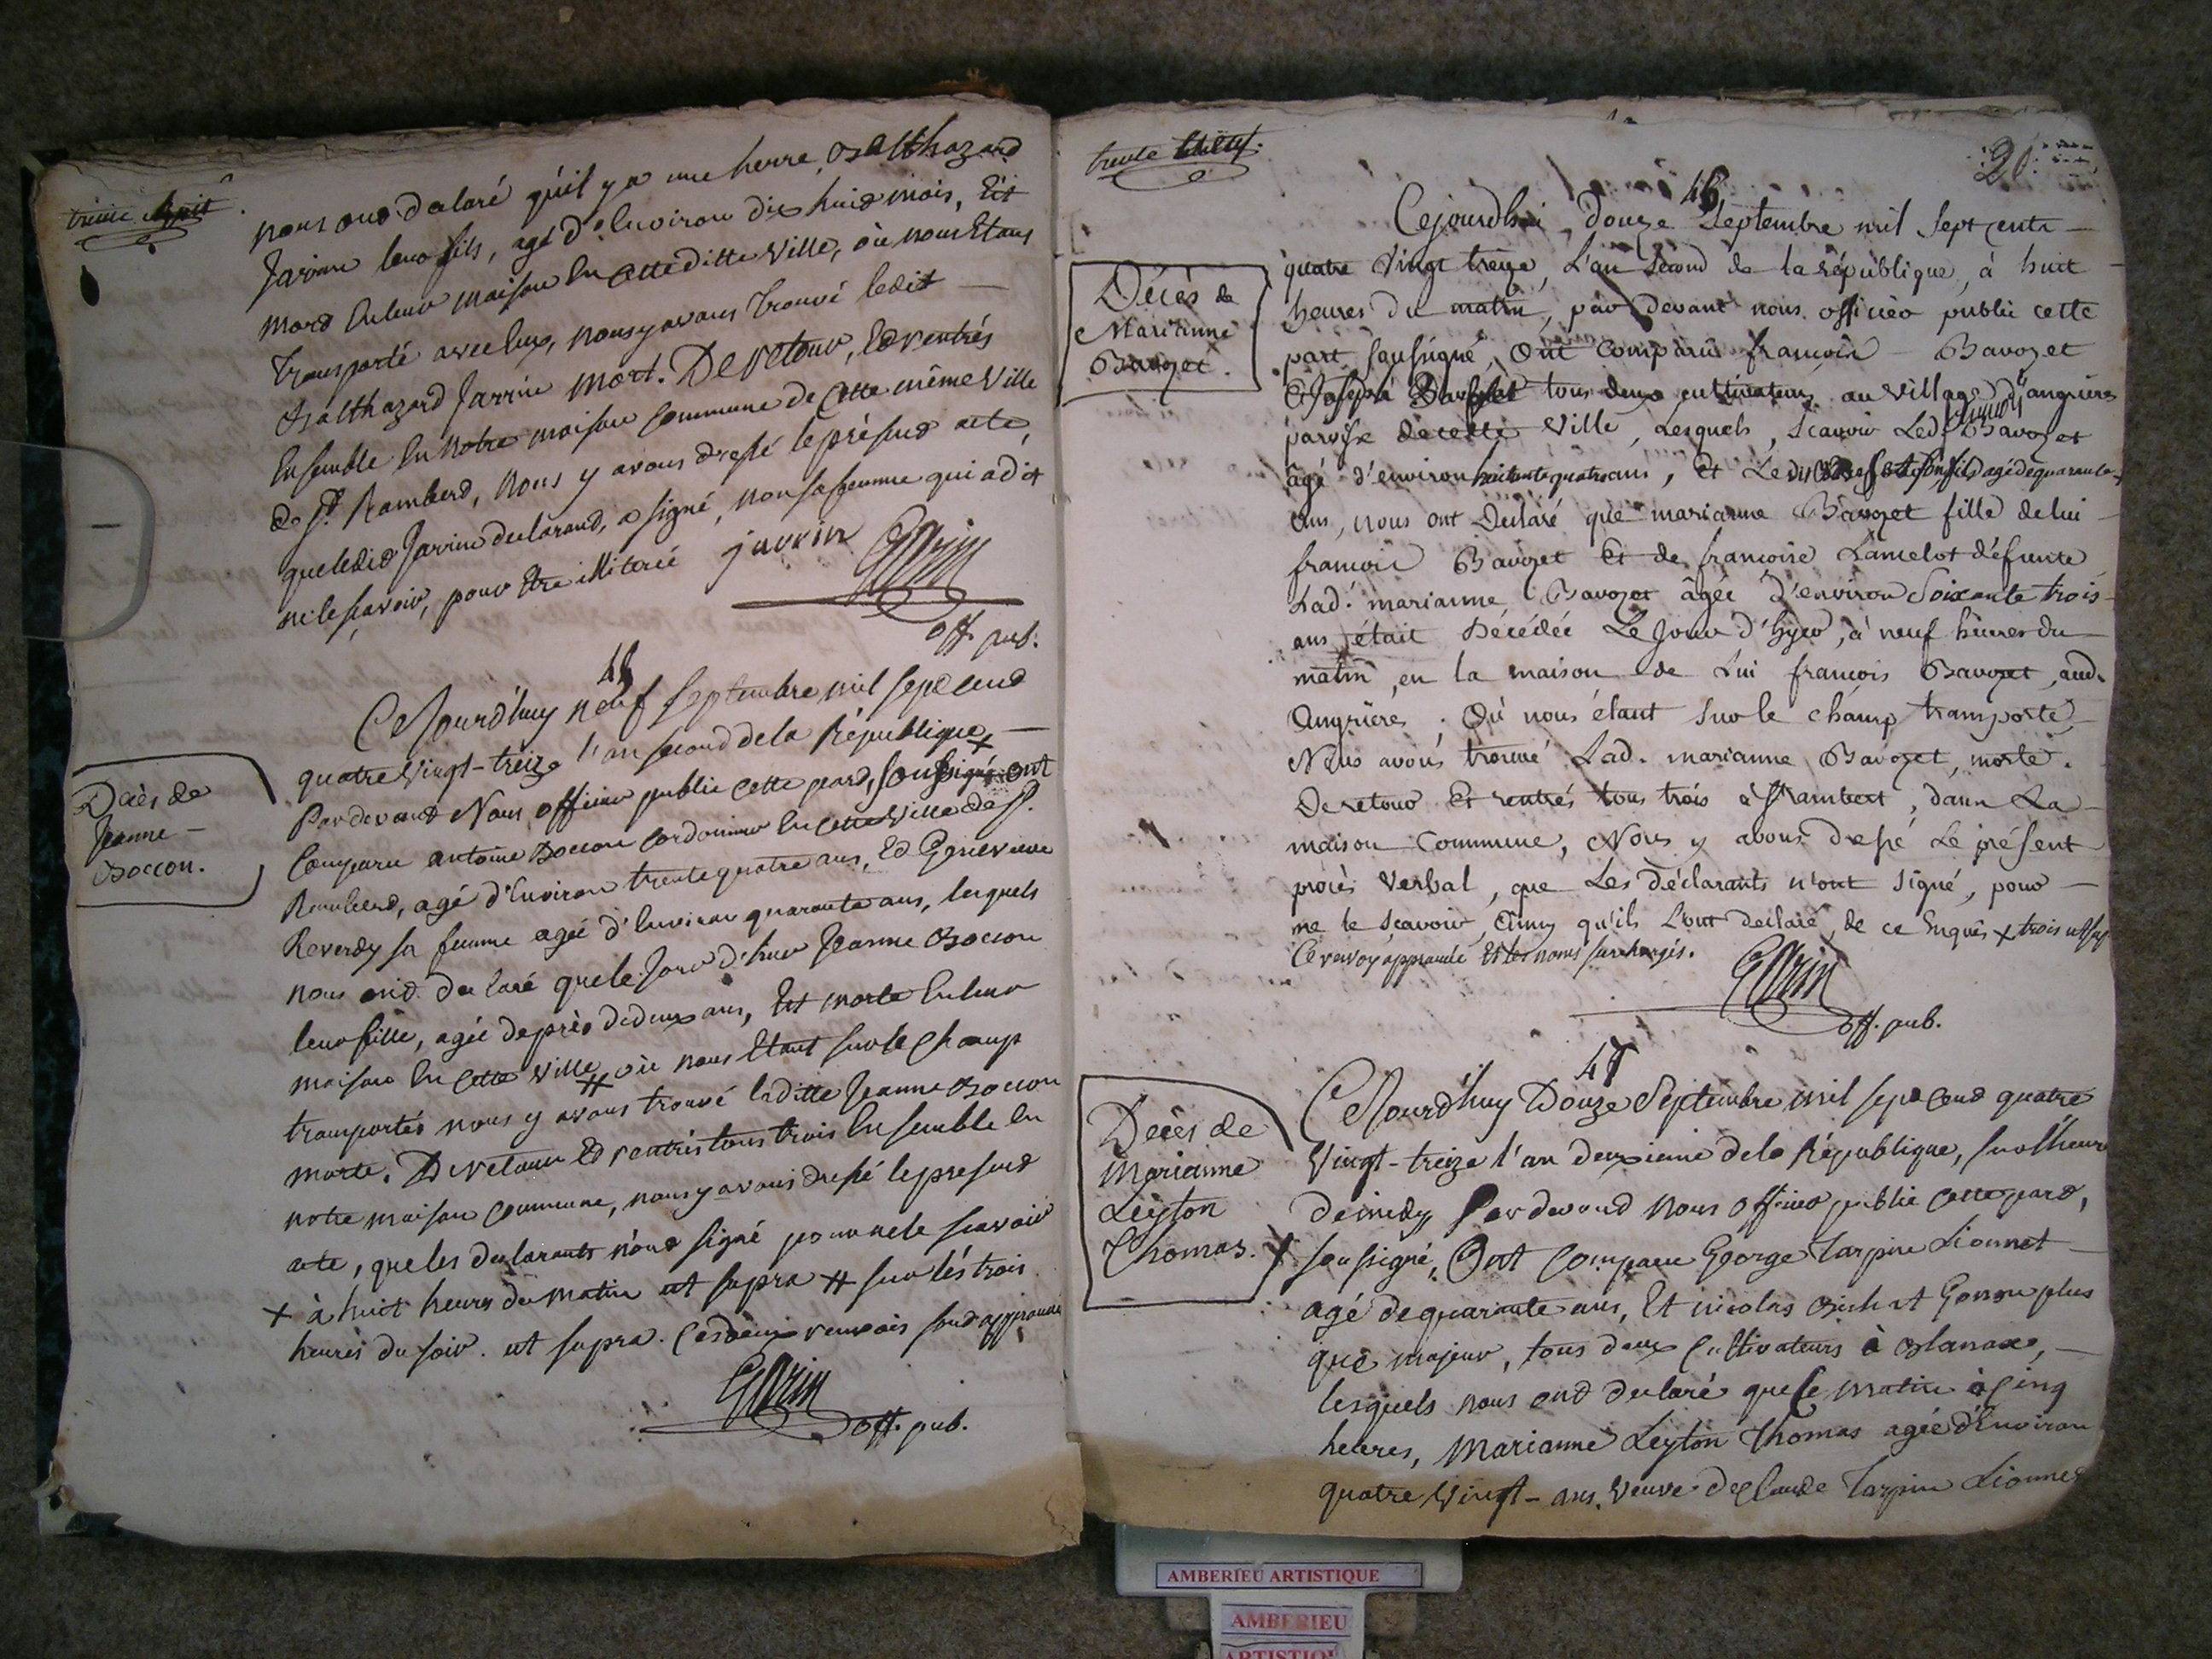 trente huit
nous ond declaré qu'il y a une heure, Balthazard
Jarrin leur fils, agé d'Environ dix huid mois, Est
mord En leur maison En cette ditte Ville, où nous Etans
transporté avec Eux, nous y avons trouvé ledit
Balthazard Jarrin mort. De retour, Ed rentrés
Ensemble En notre maison commune de Cette même Ville
de St. Ramberd, nous y avons dressé le présend acte,
que ledid Jarrin declarand, a signé, non sa femme qui a dit
ne le sçavoir, pour Etre illiterée jarrin Garin
off. pub.
Décès de
Jeanne
Boccon.
45
Ce Jourd'huy neuf Septembre mil sept cend
quatre Vingt-treize l'an second de la République, +
Pardevand Nous officier public cette pard, soussigné ont
comparu antoine Boccon cordonnier En cette Ville de St.
Ramberd, agé d'Environ trente quatre ans, Ed Genevieve
Reverdy sa femme agée d'Environ quarante ans, lesquels
nous ond declaré que le Jour d'hier Jeanne Boccon
leur fille, agée de près de deux ans, Est morte En leur
maison En Cette Ville # où nous Etant sur le champ
transportés nous y avons trouvé laditte Jeanne Boccon
morte. De retour Ed rentrés tous trois Ensemble En
notre maison commune, nous y avons dressé le presend
acte, que les declarants n'ond signé pour ne le scavoir
+ à huit heures du matin ut supra # sur les trois
heures du soir. ut supra. Ces deux renvois sond approuvés
Garin
off. pub.
trente
20
46
Cejourdhui douze Septembre mil sept cents
quatre Vingt treize, L'an second de la république, à huit
heures du matin, par devant nous officier public cette
part soussigné, Ont comparu françois Bavozet
& Joseph Bavozet tous deux cultivateurs au Village D'angrieres
paroisse de cette Ville, Lesquels, sçavoir Led. françois Bavozet
âgé d'environ huitante quatre ans, et Ledit son fils agé de quarante
ans, nous ont Declaré que marianne Bavozet fille de lui
françois Bavozet Et de françoise Lancelot défunte
Lad. marianne Bavozet âgée d'environ Soixante trois
ans, était Décédée Le Jour d'hyer, à neuf heures du
matin, en la maison de Lui françois Bavozet, aud.
Angrieres, Où nous étant sur le champ transporté
Nous avons trouvé Lad. marianne Bavozet, morte.
De retour Et rentrés tous trois à St Rambert, dans La
maison Commune, Nous y avons dressé Le présent
procès Verbal, que Les déclarants n'ont signé, pour
ne le sçavoir, Ainsy qu'ils L'ont declaré, de ce Enquis + trois
Ce renvoy approuvé Et les noms surchargés.
Garin
off. pub.
Décès de
Marianne
Bavozet.
47
Ce Jourd'huy Douze Septembre mil sept Cend quatre
Vingt-treize l'an deuxieme de la République, sur l'heure
de midy Pardevand nous officier public cette pard,
soussigné, Ont Comparu George Tarpin Lionnet
agé de quarante ans, Et nicolas Bichat Gonon plus
que majeur, tous deux Cultivateurs à Blanaz,
lesquels nous ond declaré que Ce matin à Cinq
heures, Marianne Leyton Thomas agée d'Environ
quatre Vingt-ans, Veuve de Claude Tarpin Lionnet
Décès de
Marianne
Leyton
Thomas.
AMBERIEU ARTISTIQUE
AMBERIEU
ARTISTIQUE